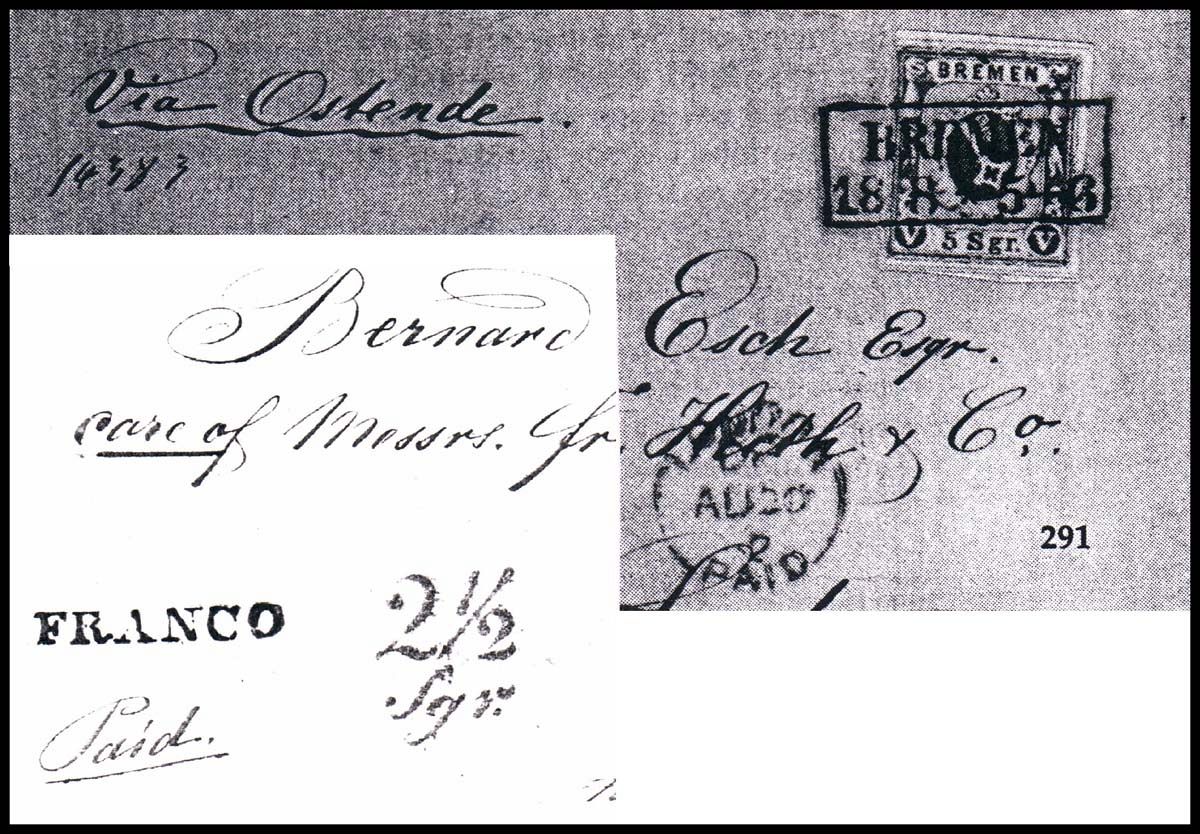 Via Ostende.
BREMEN
BREMEN
18 8 5-6
V 5 Sgr. V
Bernard Esch Esqr.
care of Messrs. Fr. Huth & Co.
AU 20
PAID
291
FRANCO
2 1/2
Sgr.
Paid.